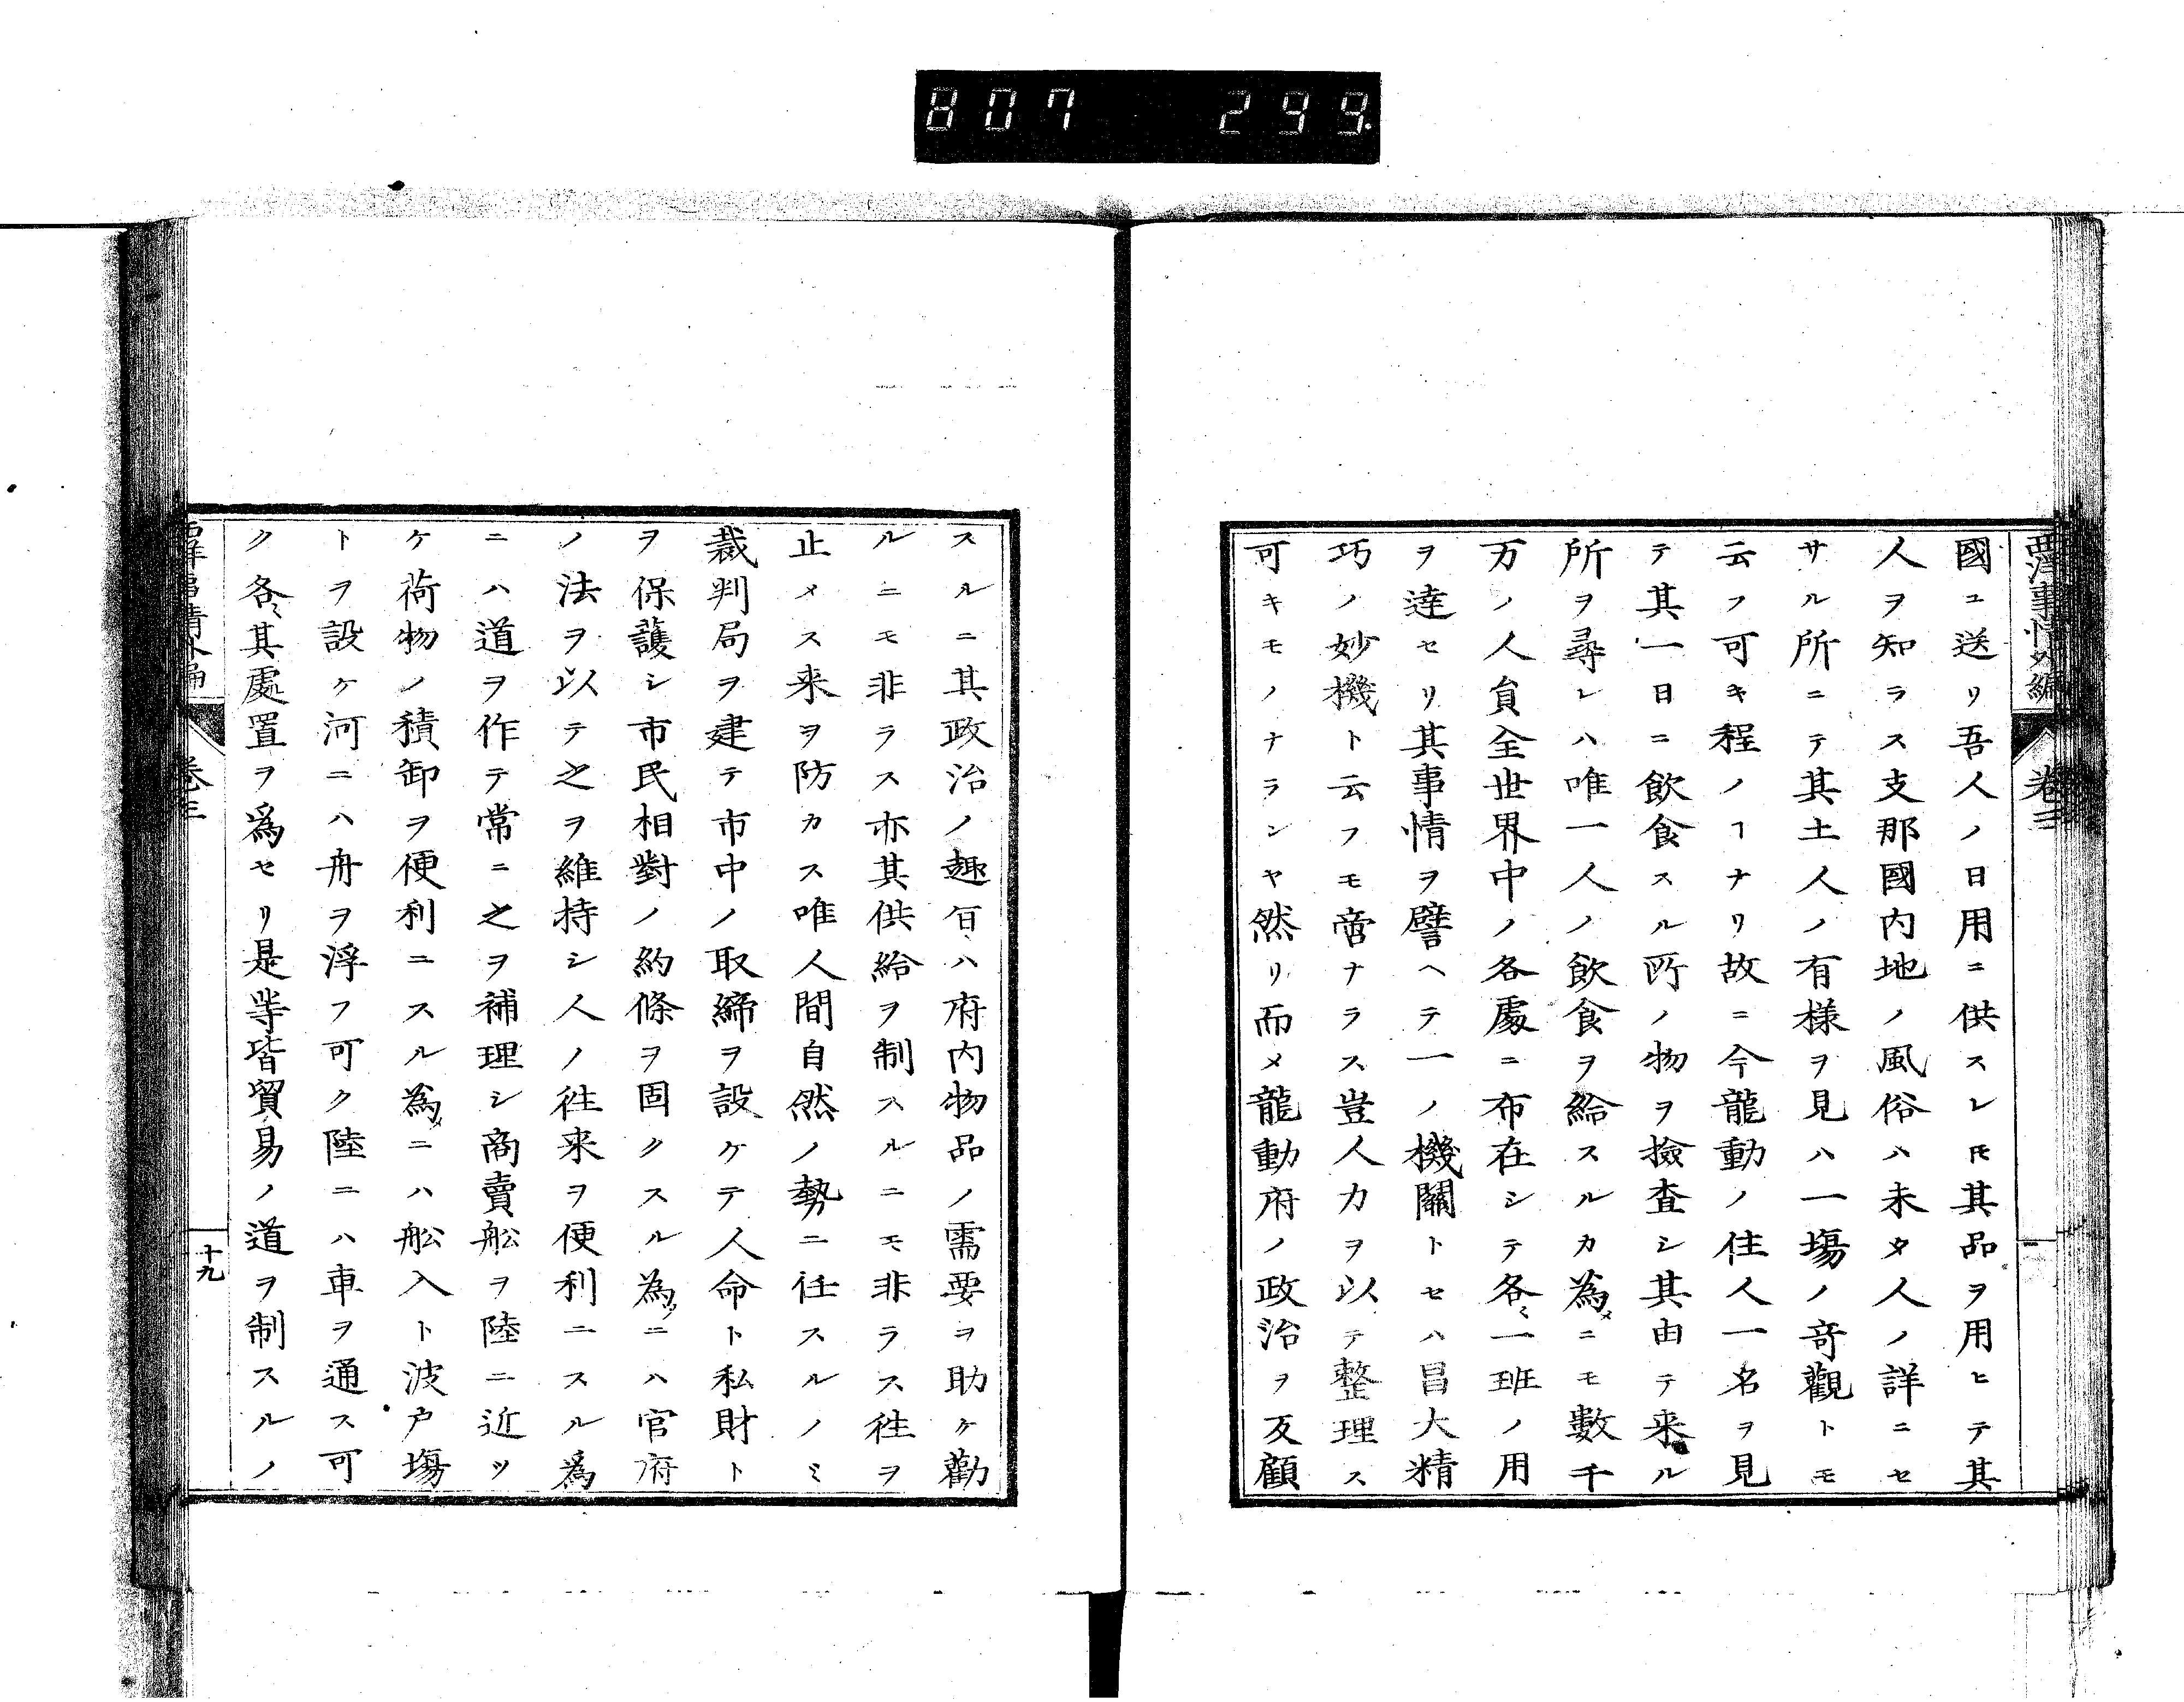 807 299
西洋事情外編 卷三
國ニ送リ吾人ノ日用ニ供スレ𪜈其品ヲ用ヒテ其
人ヲ知ラス支那國内地ノ風俗ハ未タ人ノ詳ニセ
サル所ニテ其土人ノ有樣ヲ見ハ一塲ノ竒觀トモ
云フ可キ程ノヿナリ故ニ今龍動ノ住人一名ヲ見
テ其一日ニ飲食スル所ノ物ヲ撿査シ其由テ来ル
所ヲ尋レハ唯一人ノ飲食ヲ給スルカ為メニモ數千
万ノ人員全世界中ノ各處ニ布在シテ各〻一班ノ用
ヲ達セリ其事情ヲ譬ヘテ一ノ機關トセハ昌大精
巧ノ妙機ト云フモ啻ナラス豈人力ヲ以テ整理ス
可キモノナランヤ然リ而メ龍動府ノ政治ヲ反顧
スルニ其政治ノ趣旨ハ府内物品ノ需要ヲ助ケ勸
ルニモ非ラス亦其供給ヲ制スルニモ非ラス徃ヲ
止メス来ヲ防カス唯人間自然ノ勢ニ任スルノミ
裁判局ヲ建テ市中ノ取締ヲ設ケテ人命ト私財ト
ヲ保護シ市民相對ノ約條ヲ固クスル為メニハ官府
ノ法ヲ以テ之ヲ維持シ人ノ徃来ヲ便利ニスル爲
ニハ道ヲ作テ常ニ之ヲ補理シ商賣舩ヲ陸ニ近ツ
ケ荷物ノ積卸ヲ便利ニスル為メニハ舩入ト波戸塲
トヲ設ケ河ニハ舟ヲ浮フ可ク陸ニハ車ヲ通ス可
ク各〻其處置ヲ爲セリ是等皆貿易ノ道ヲ制スルノ
西洋事情外編 卷三 十九